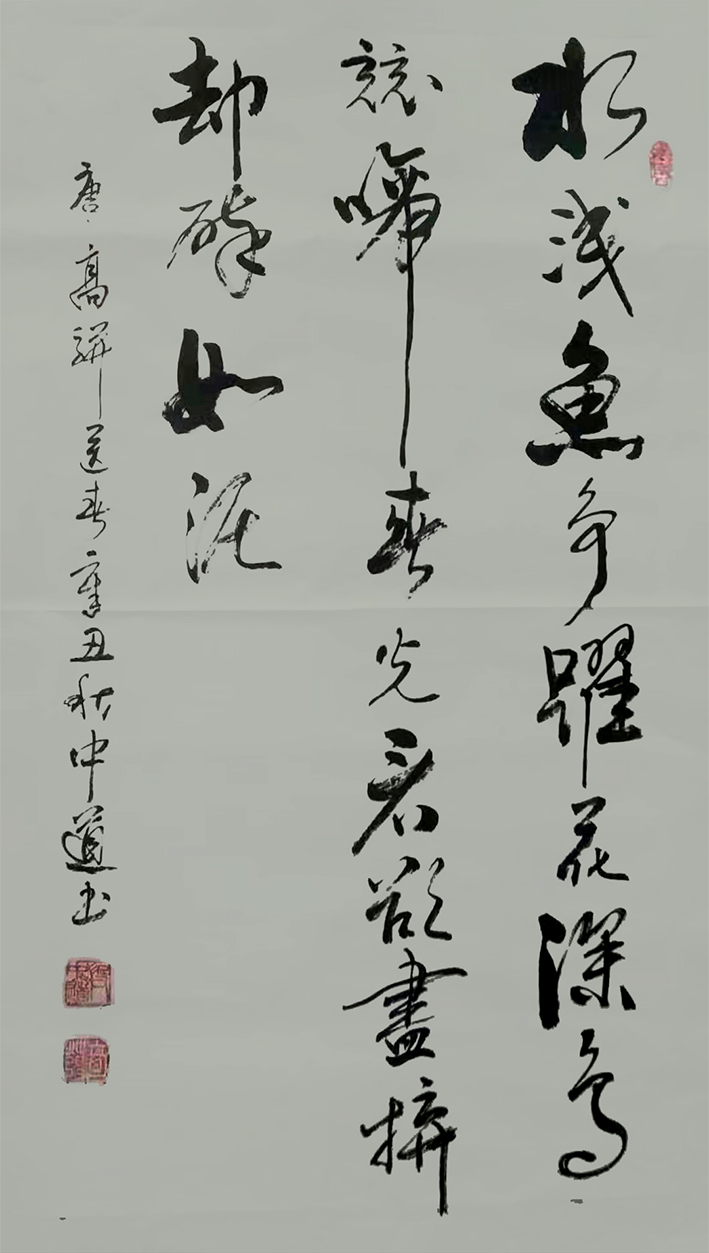 水浅魚争躍花深鳥
競啼春光看欲盡拚
却醉如泥
唐高駢送春辛丑秋中道书